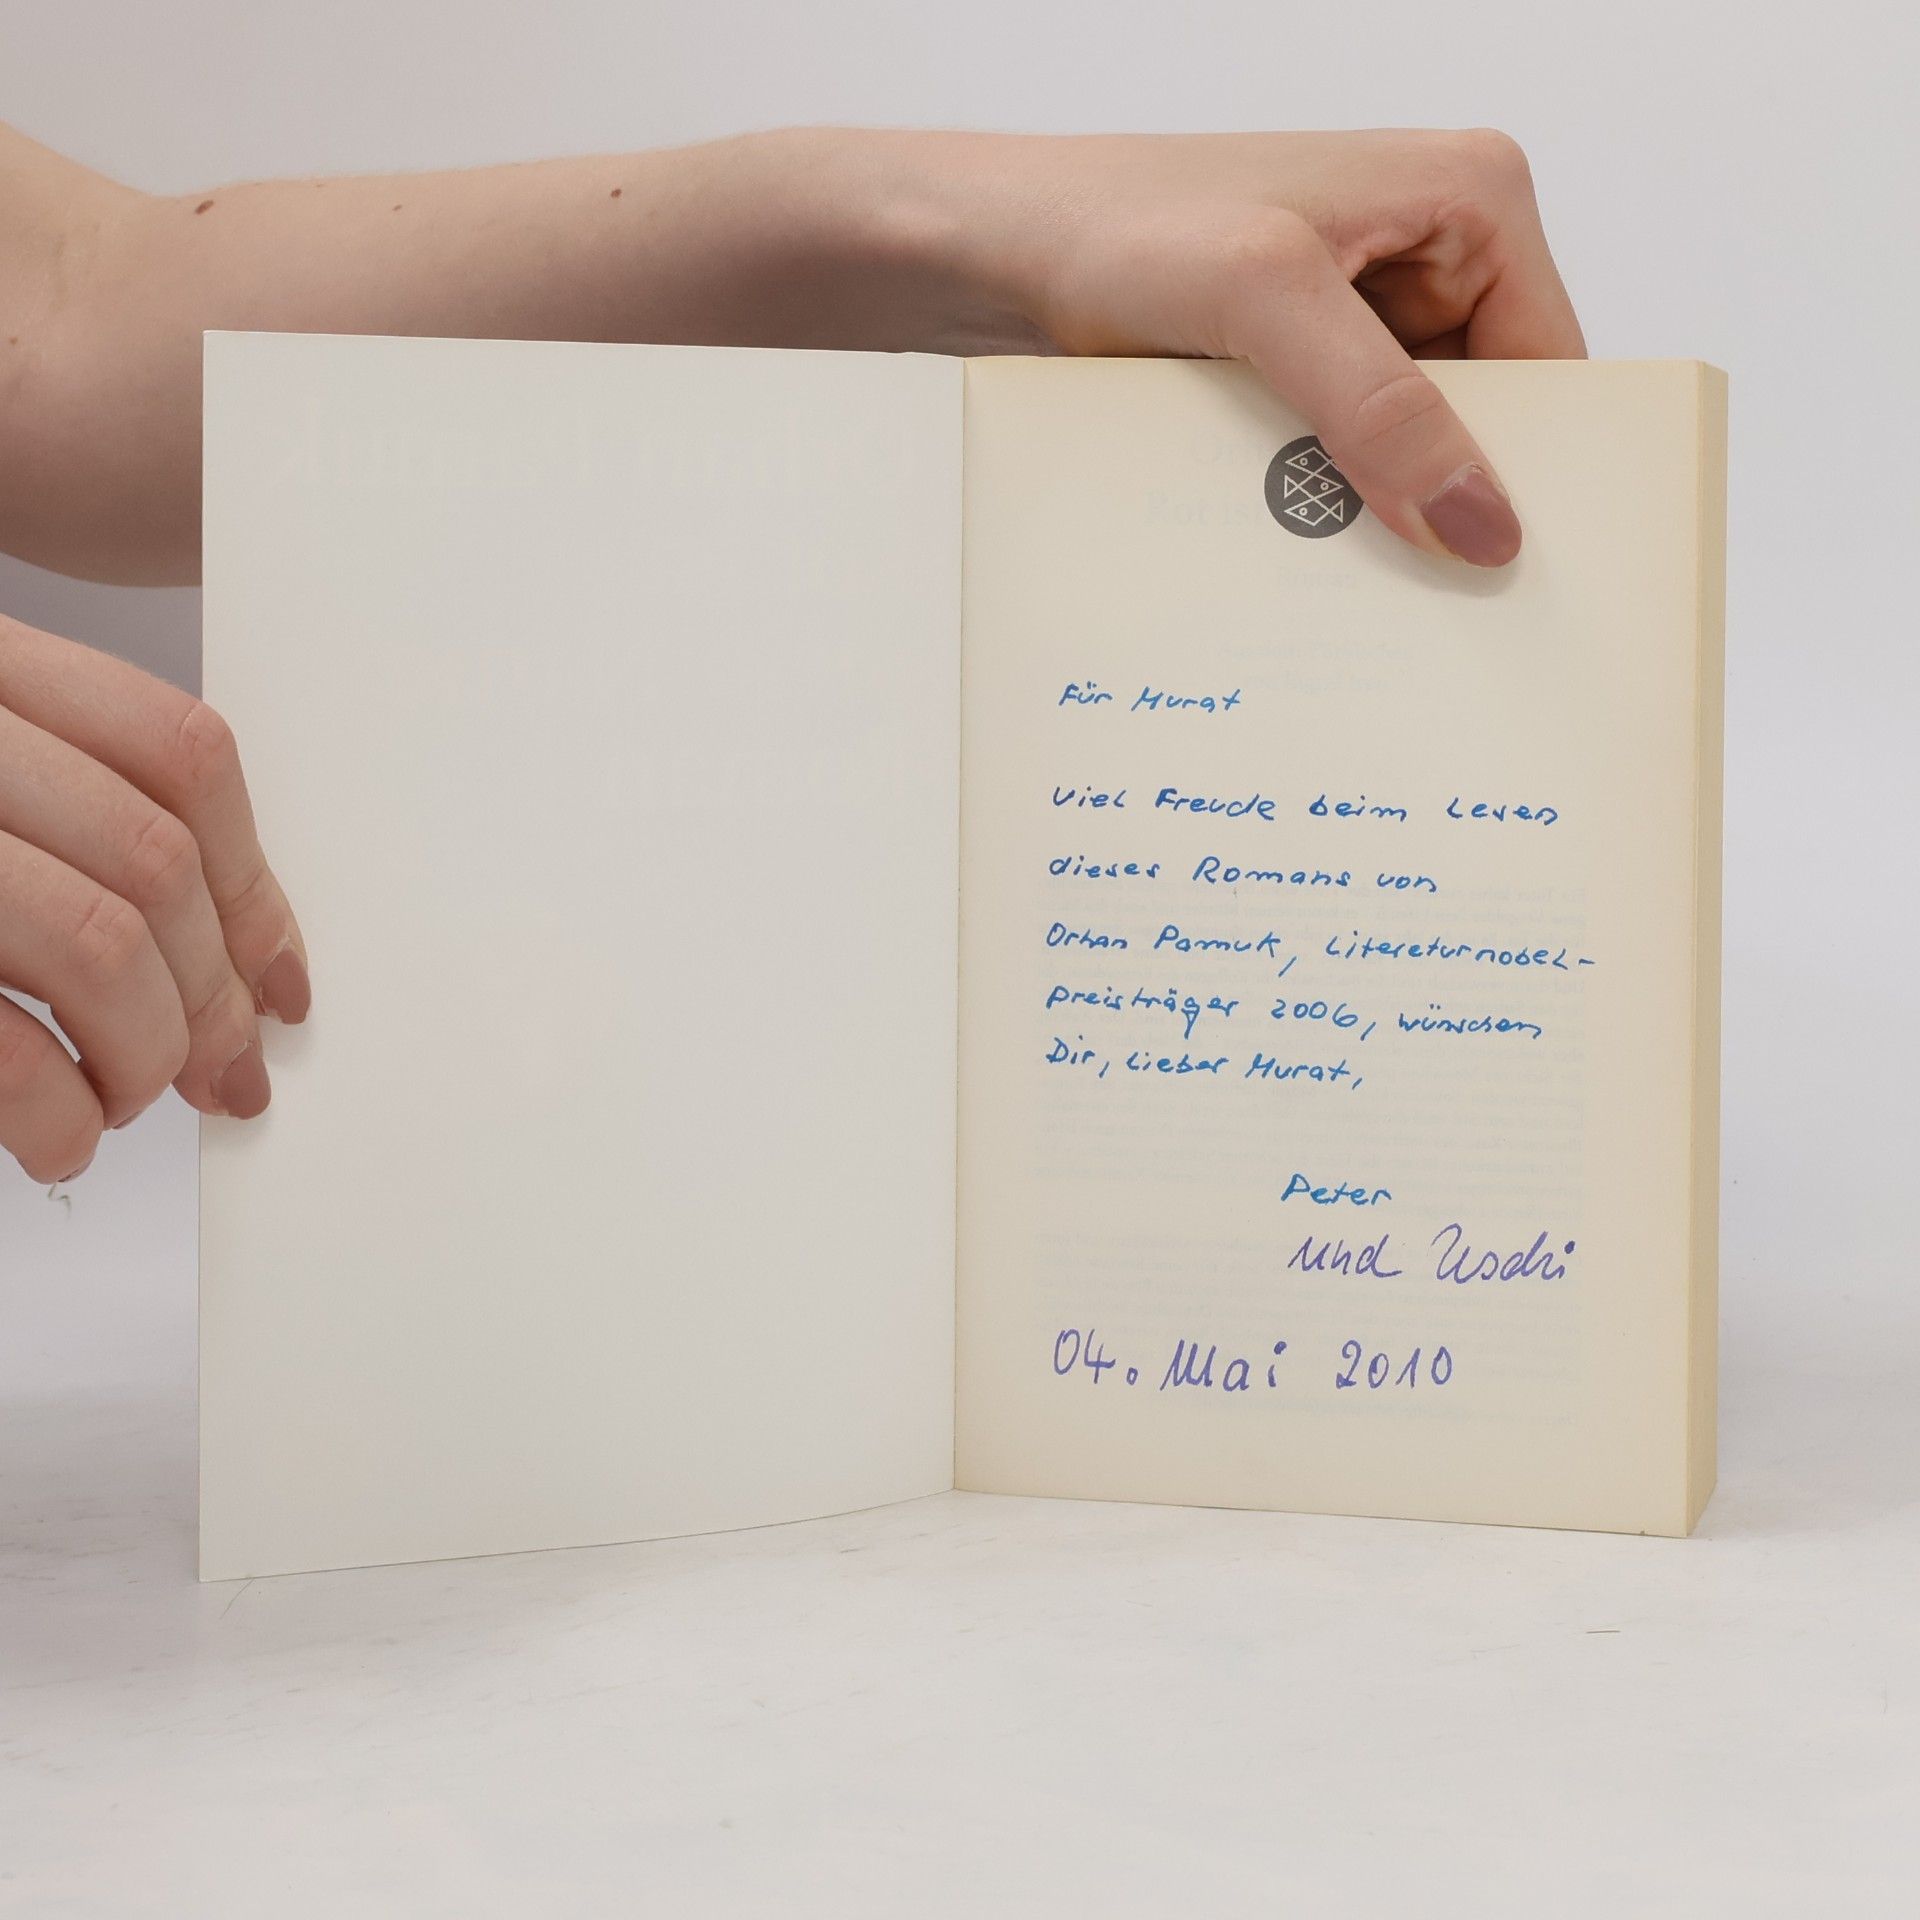 Für Murat
Viel Freude beim Lesen
dieses Romans von
Orhan Pamuk, Literaturnobel-
preisträger 2006, wünschen
Dir, Lieber Murat,
Peter
und Uschi
04. Mai 2010